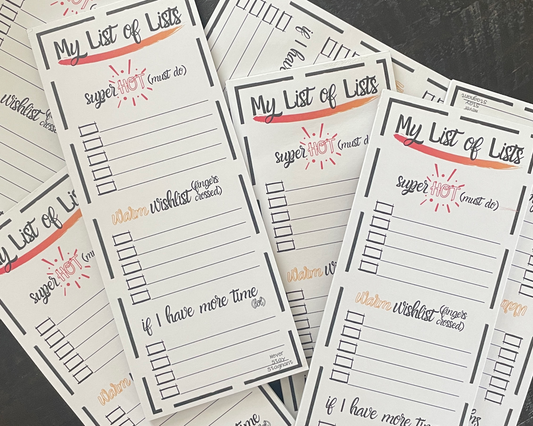 Wishlist (fingers
crossed)
My List of Lists
super HOT (must do)
Warm Wishlist (fingers
crossed)
if I have more time
(lol)
never
stay
stagnant
if I have
My List of Lists
super HOT (must do
Warm
My List of Lists
super HOT (must do)
Warm Wishlist (fingers
crossed)
if I have more time
My List of Lists
super HOT
Warm
stagnant
stay
never
Warm